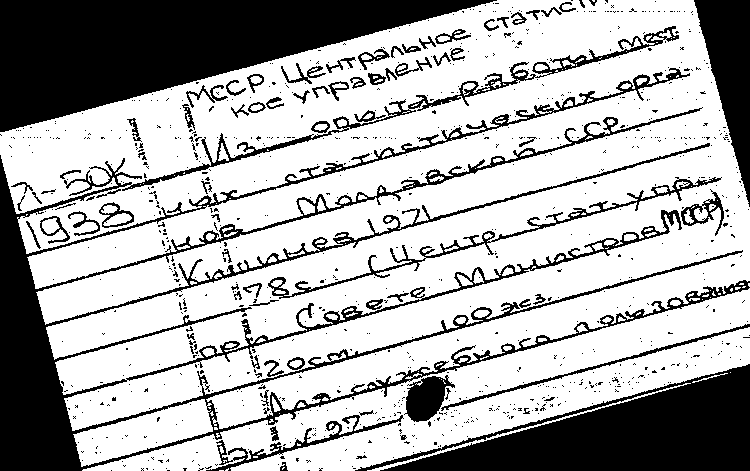 МССР. Центральное статисти
кое управление
Из опыта работы мест
ных статистических орга
нов Молдавской ССР.
Кишинев, 1971
78с. (Центр. стат. упр.
при Совете Министров МССР)
20см. 100 экз.
Для служебного пользования
Экз № 97
Л-50К
1938